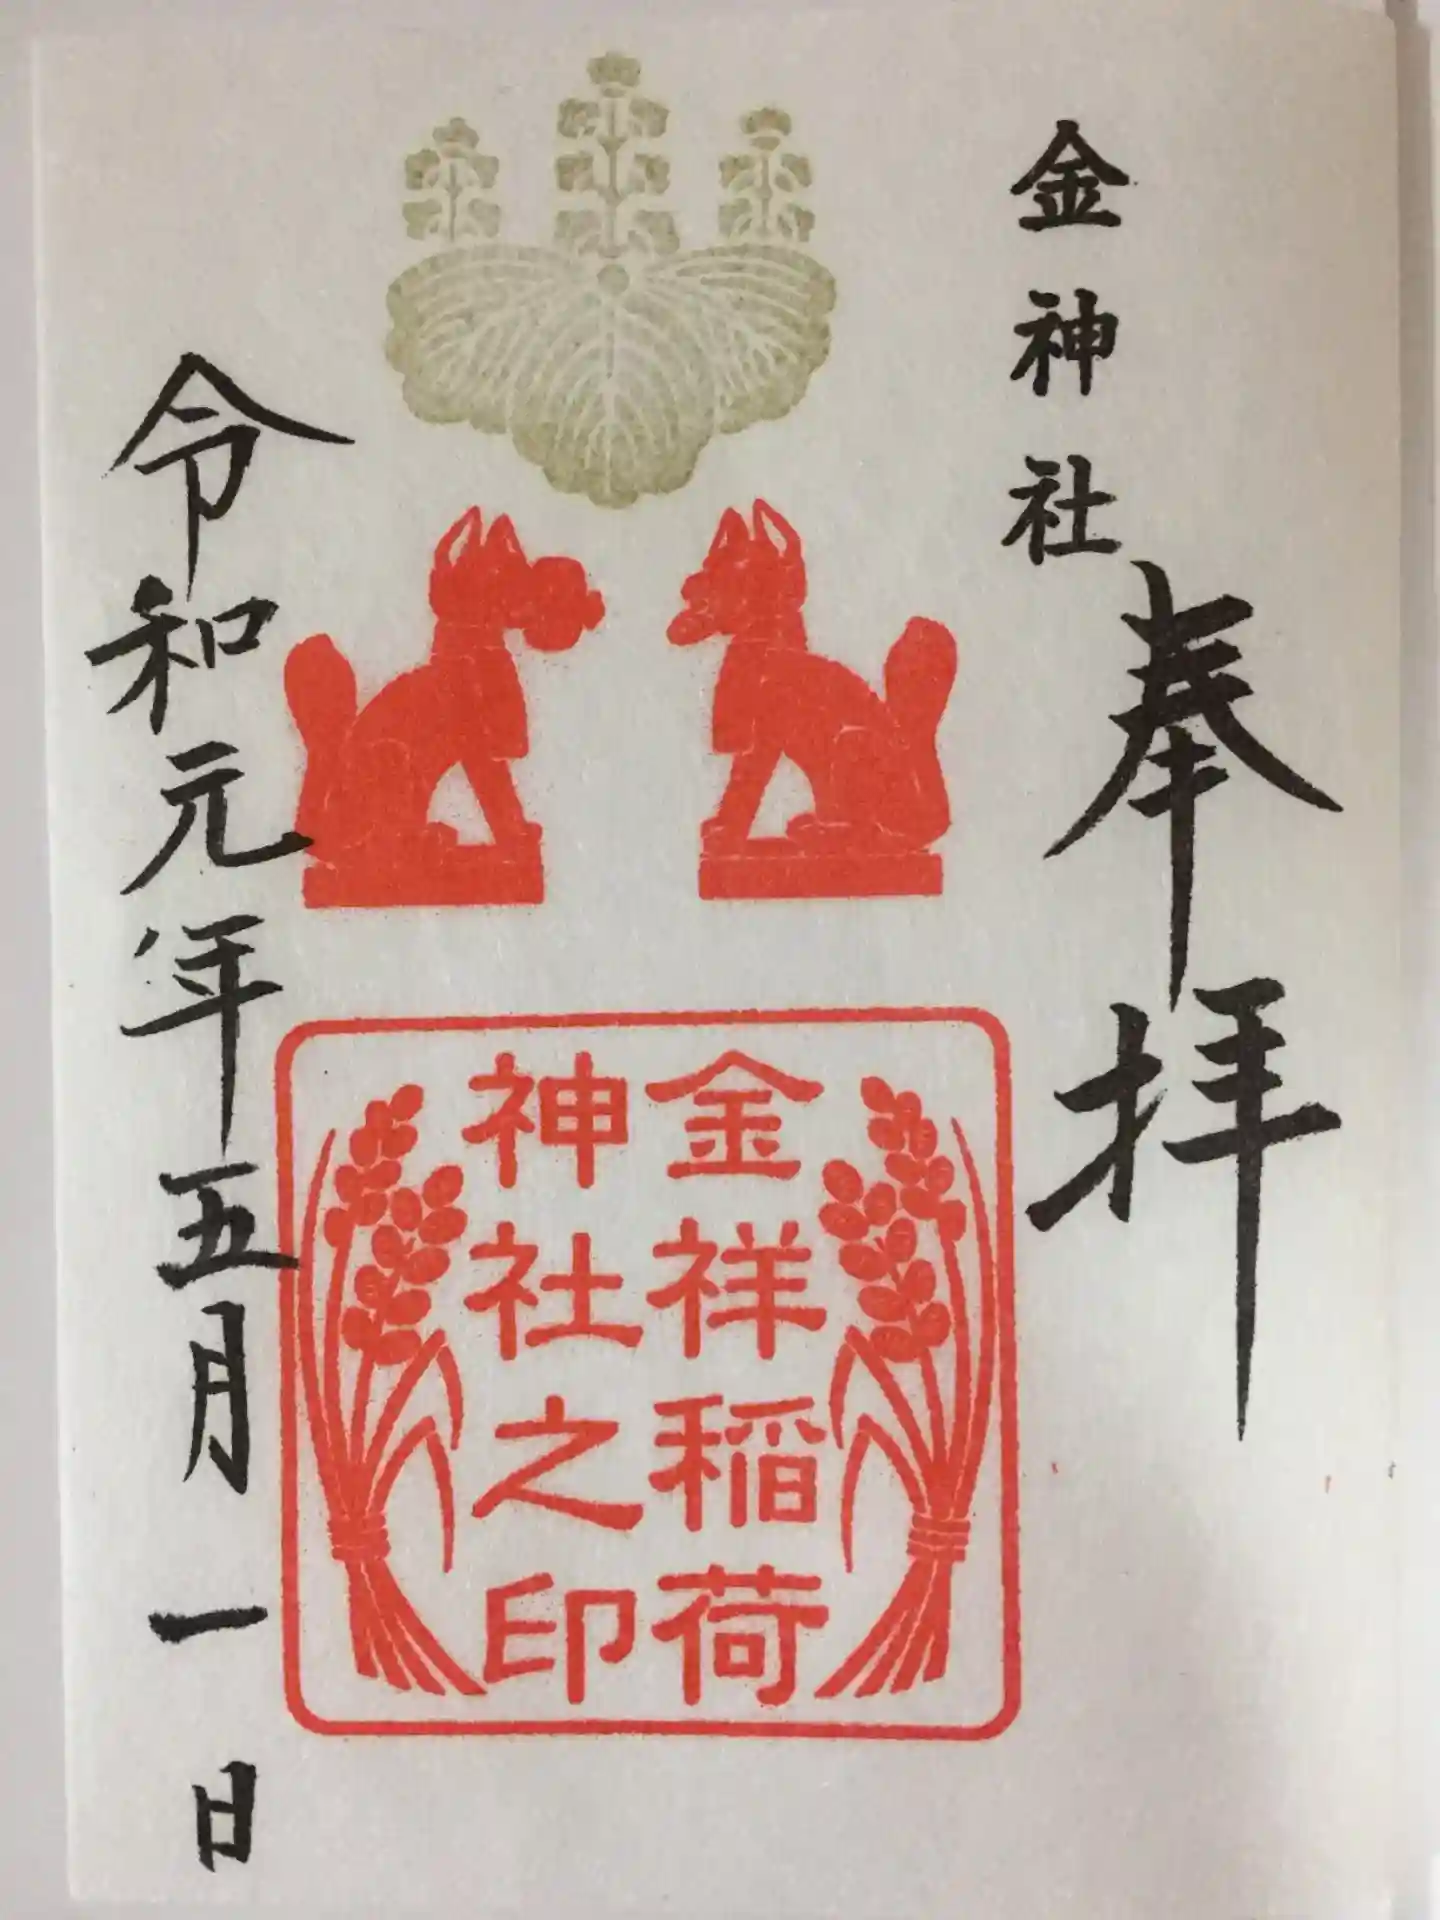 金神社
奉拝
金祥稲荷
神社之印
令和元年五月一日